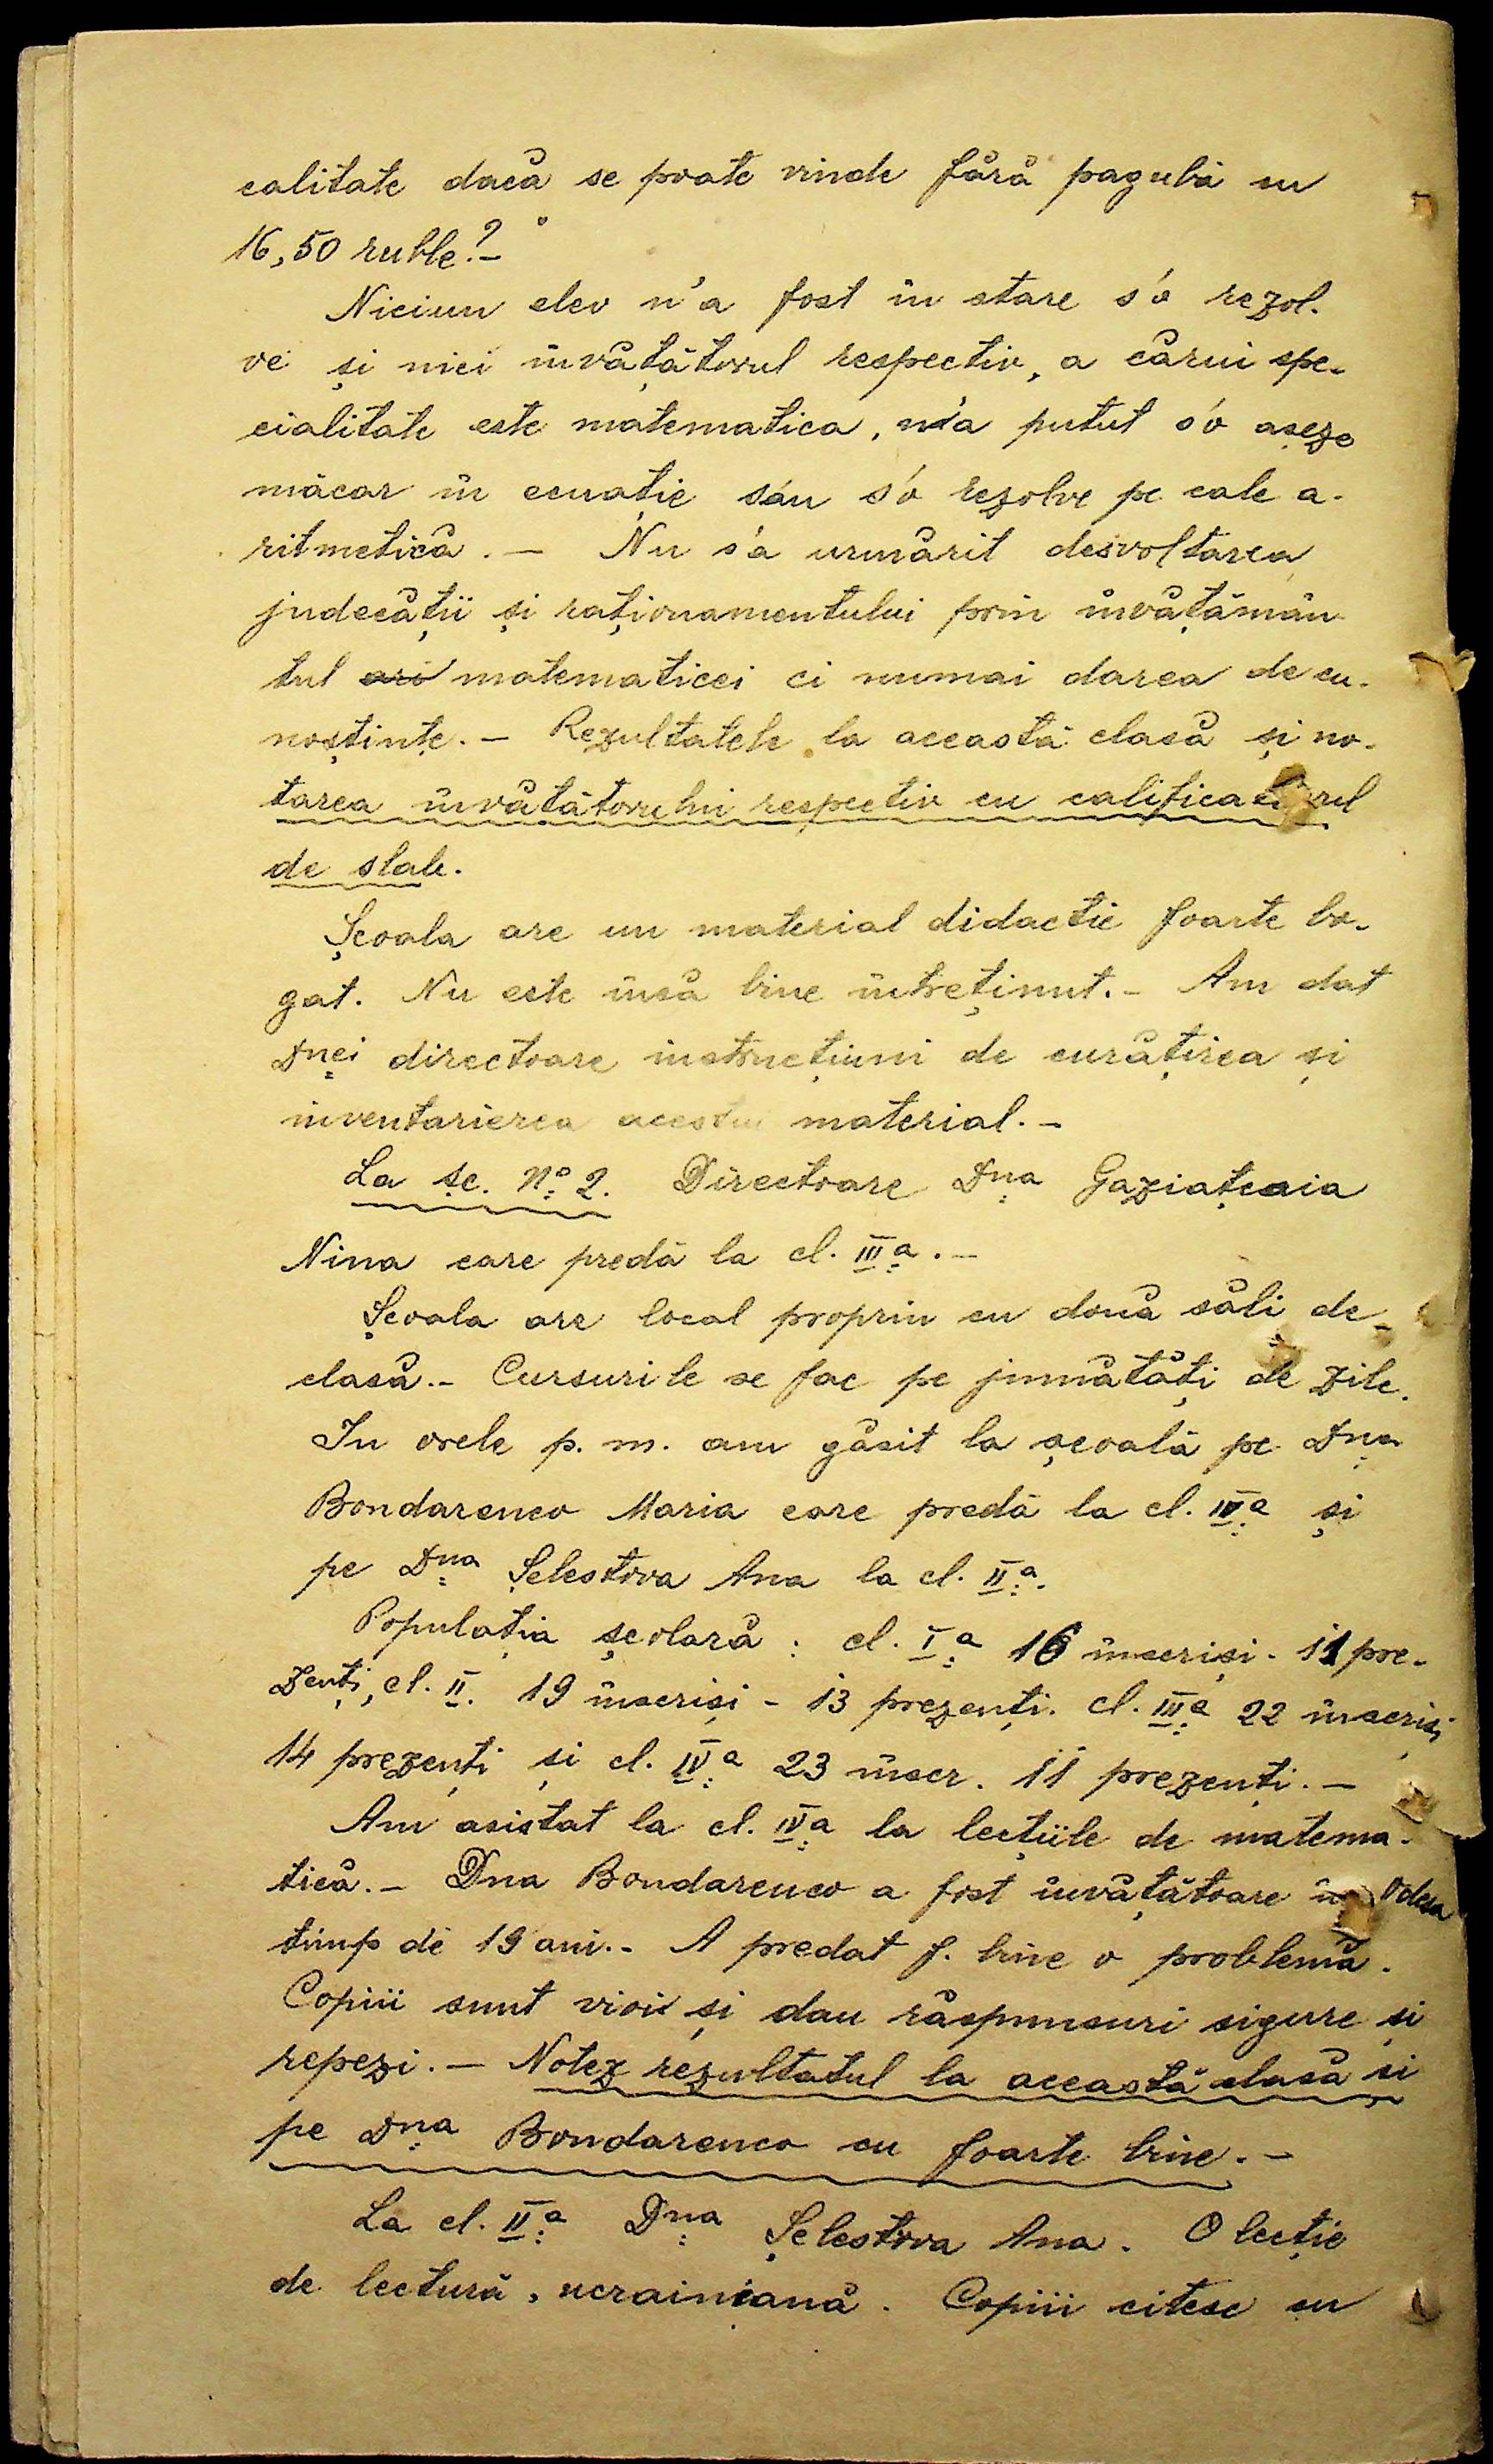 calitate dacă se poate vinde fără pagubă cu
16,50 ruble?-
Niciun elev n'a fost în stare s'o rezol-
ve și nici învățătorul respectiv, a cărui spe-
cialitate este matematica, n'a putut s'o așeze
măcar în ecuație sau s'o rezolve pe cale a-
ritmetică. — Nu s'a urmărit desvoltarea
judecății și raționamentului prin învățămân-
tul ari matematicei ci numai darea de cu-
noștințe. — Rezultatele la această clasă și no-
tarea învățătorului respectiv cu calificativul
de slab.
Școala are un material didactic foarte bo-
gat. Nu este însă bine întreținut. - Am dat
Dnei directoare instrucțiuni de curățirea și
inventarierea acestui material. -
La șc. No 2. Directoare Dna Gaziațcaia
Nina care predă la cl. III a. —
Școala are local propriu cu două săli de-
clasă. - Cursurile se fac pe jumătăți de zile.
In orele p. m. am găsit la școală pe Dna
Bondarenco Maria care predă la cl. IV a și
pe Dna Șelestova Ana la cl. II a.
Populația școlară: cl. I a 16 înscriși - 11 pre-
zenți, cl. II. 19 înscriși - 13 prezenți. cl. III a 22 înscriși
14 prezenți și cl. IV a 23 înscr. 11 prezenți. —
Am asistat la cl. IV a la lecțiile de matema-
tică. - Dna Bondarenco a fost învățătoare în Odesa
timp de 19 ani. - A predat f. bine o problemă.
Copiii sunt vioi și dau răspunsuri sigure și
repezi. — Notez rezultatul la această clasă și
pe Dna Bondarenco cu foarte bine. -
La cl. II a Dna Șelestova Ana. O lecție
de lectură, ucrainiană. Copiii citesc cu